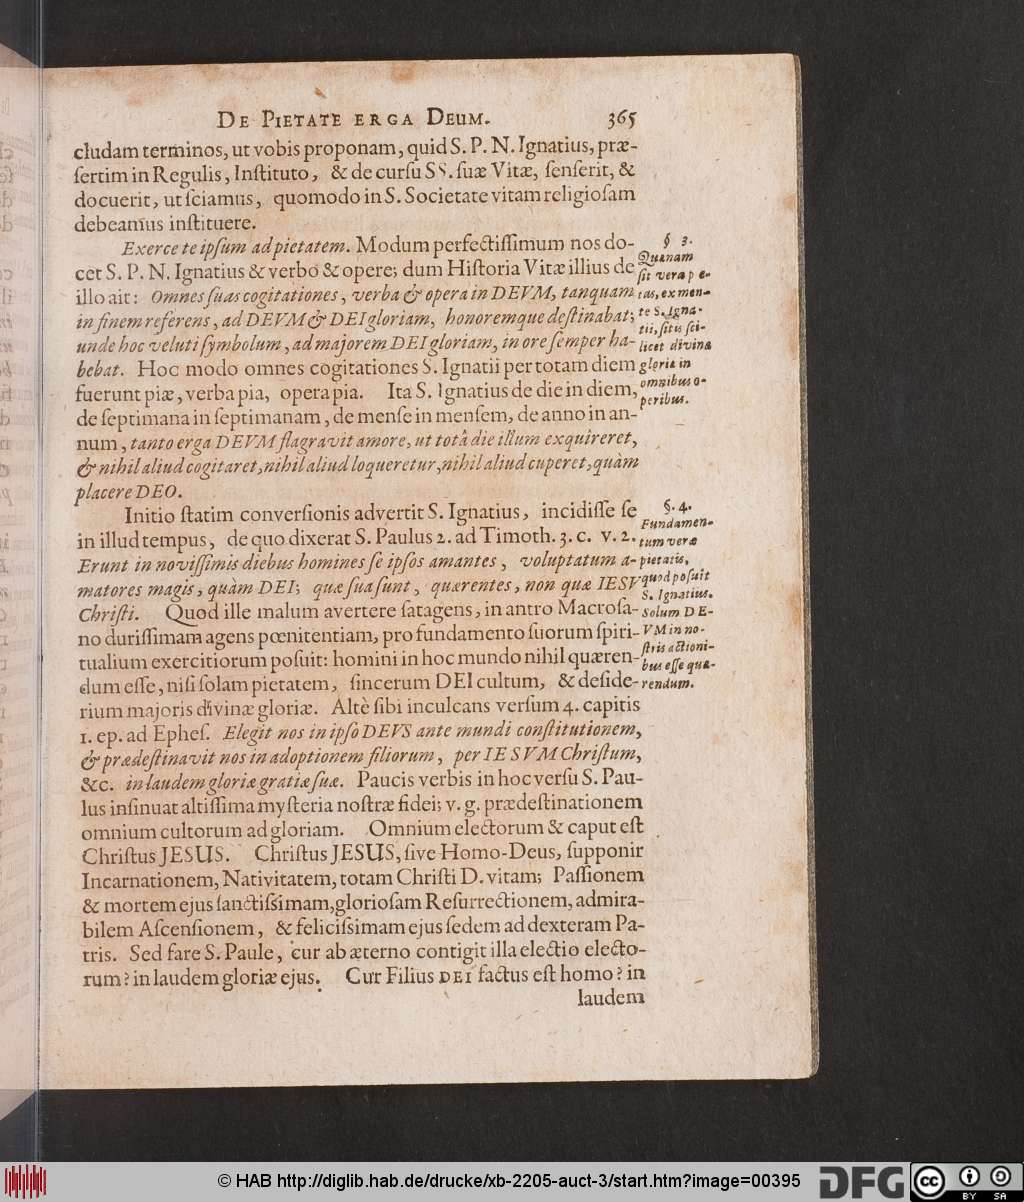 DE PIETATE ERGA DEUM. 365
cludam terminos, ut vobis proponam, quid S. P. N. Ignatius, præ-
ſertim in Regulis, Inſtituto, & de curſu SS. ſuæ Vitæ, ſenſerit, &
docuerit, ut ſciamus, quomodo in S. Societate vitam religioſam
debeamus inſtituere.
Exerce te ipſum ad pietatem. Modum perfectiſſimum nos do-
cet S. P. N. Ignatius & verbo & opere; dum Hiſtoria Vitæ illius de
illo ait: Omnes ſuas cogitationes, verba & opera in DEVM, tanquam
in finem referens, ad DEVM & DEI gloriam, honoremque deſtinabat;
unde hoc veluti ſymbolum, ad majorem DEI gloriam, in ore ſemper ha-
bebat. Hoc modo omnes cogitationes S. Ignatii per totam diem
fuerunt piæ, verba pia, opera pia. Ita S. Ignatius de die in diem,
de ſeptimana in ſeptimanam, de menſe in menſem, de anno in an-
num, tanto erga DEVM flagravit amore, ut totâ die illum exquireret,
& nihil aliud cogitaret, nihil aliud loqueretur, nihil aliud cuperet, quàm
placere DEO.
§ 3.
Quænam
ſit vera pe-
tas, ex men-
te S. Igna-
tii, ſitu ſci-
licet divina
gloria in
omnibus o-
peribus.
Initio ſtatim converſionis advertit S. Ignatius, incidiſſe ſe
in illud tempus, de quo dixerat S. Paulus 2. ad Timoth. 3. c. v. 2.
Erunt in noviſſimis diebus homines ſe ipſos amantes, voluptatum a-
matores magis, quàm DEI; quæ ſua ſunt, quærentes, non quæ IESV
Chriſti. Quod ille malum avertere ſatagens, in antro Macroſa-
no duriſſimam agens pœnitentiam, pro fundamento ſuorum ſpiri-
tualium exercitiorum poſuit: homini in hoc mundo nihil quæren-
dum eſſe, niſi ſolam pietatem, ſincerum DEI cultum, & deſide-
rium majoris divinæ gloriæ. Altè ſibi inculcans verſum 4. capitis
1. ep. ad Epheſ. Elegit nos in ipſo DEVS ante mundi conſtitutionem,
& prædeſtinavit nos in adoptionem filiorum, per IESVM Chriſtum,
&c. in laudem gloriæ gratiæ ſuæ. Paucis verbis in hoc verſu S. Pau-
lus inſinuat altiſſima myſteria noſtræ fidei; v. g. prædeſtinationem
omnium cultorum ad gloriam. Omnium electorum & caput eſt
Chriſtus JESUS. Chriſtus JESUS, ſive Homo-Deus, ſupponir
Incarnationem, Nativitatem, totam Chriſti D. vitam; Paſſionem
& mortem ejus ſanctiſsimam, glorioſam Reſurrectionem, admira-
bilem Aſcenſionem, & feliciſsimam ejus ſedem ad dexteram Pa-
tris. Sed fare S. Paule, cur ab æterno contigit illa electio electo-
rum? in laudem gloriæ ejus. Cur Filius DEI factus eſt homo? in
laudem
§. 4.
Fundamen-
tum veræ
pietatis,
quod poſuit
S. Ignatius.
Solum DE-
VM in no-
ſtris actioni-
bus eſſe quæ-
rendum.
© HAB http://diglib.hab.de/drucke/xb-2205-auct-3/start.htm?image=00395
DFG
cc
BY SA